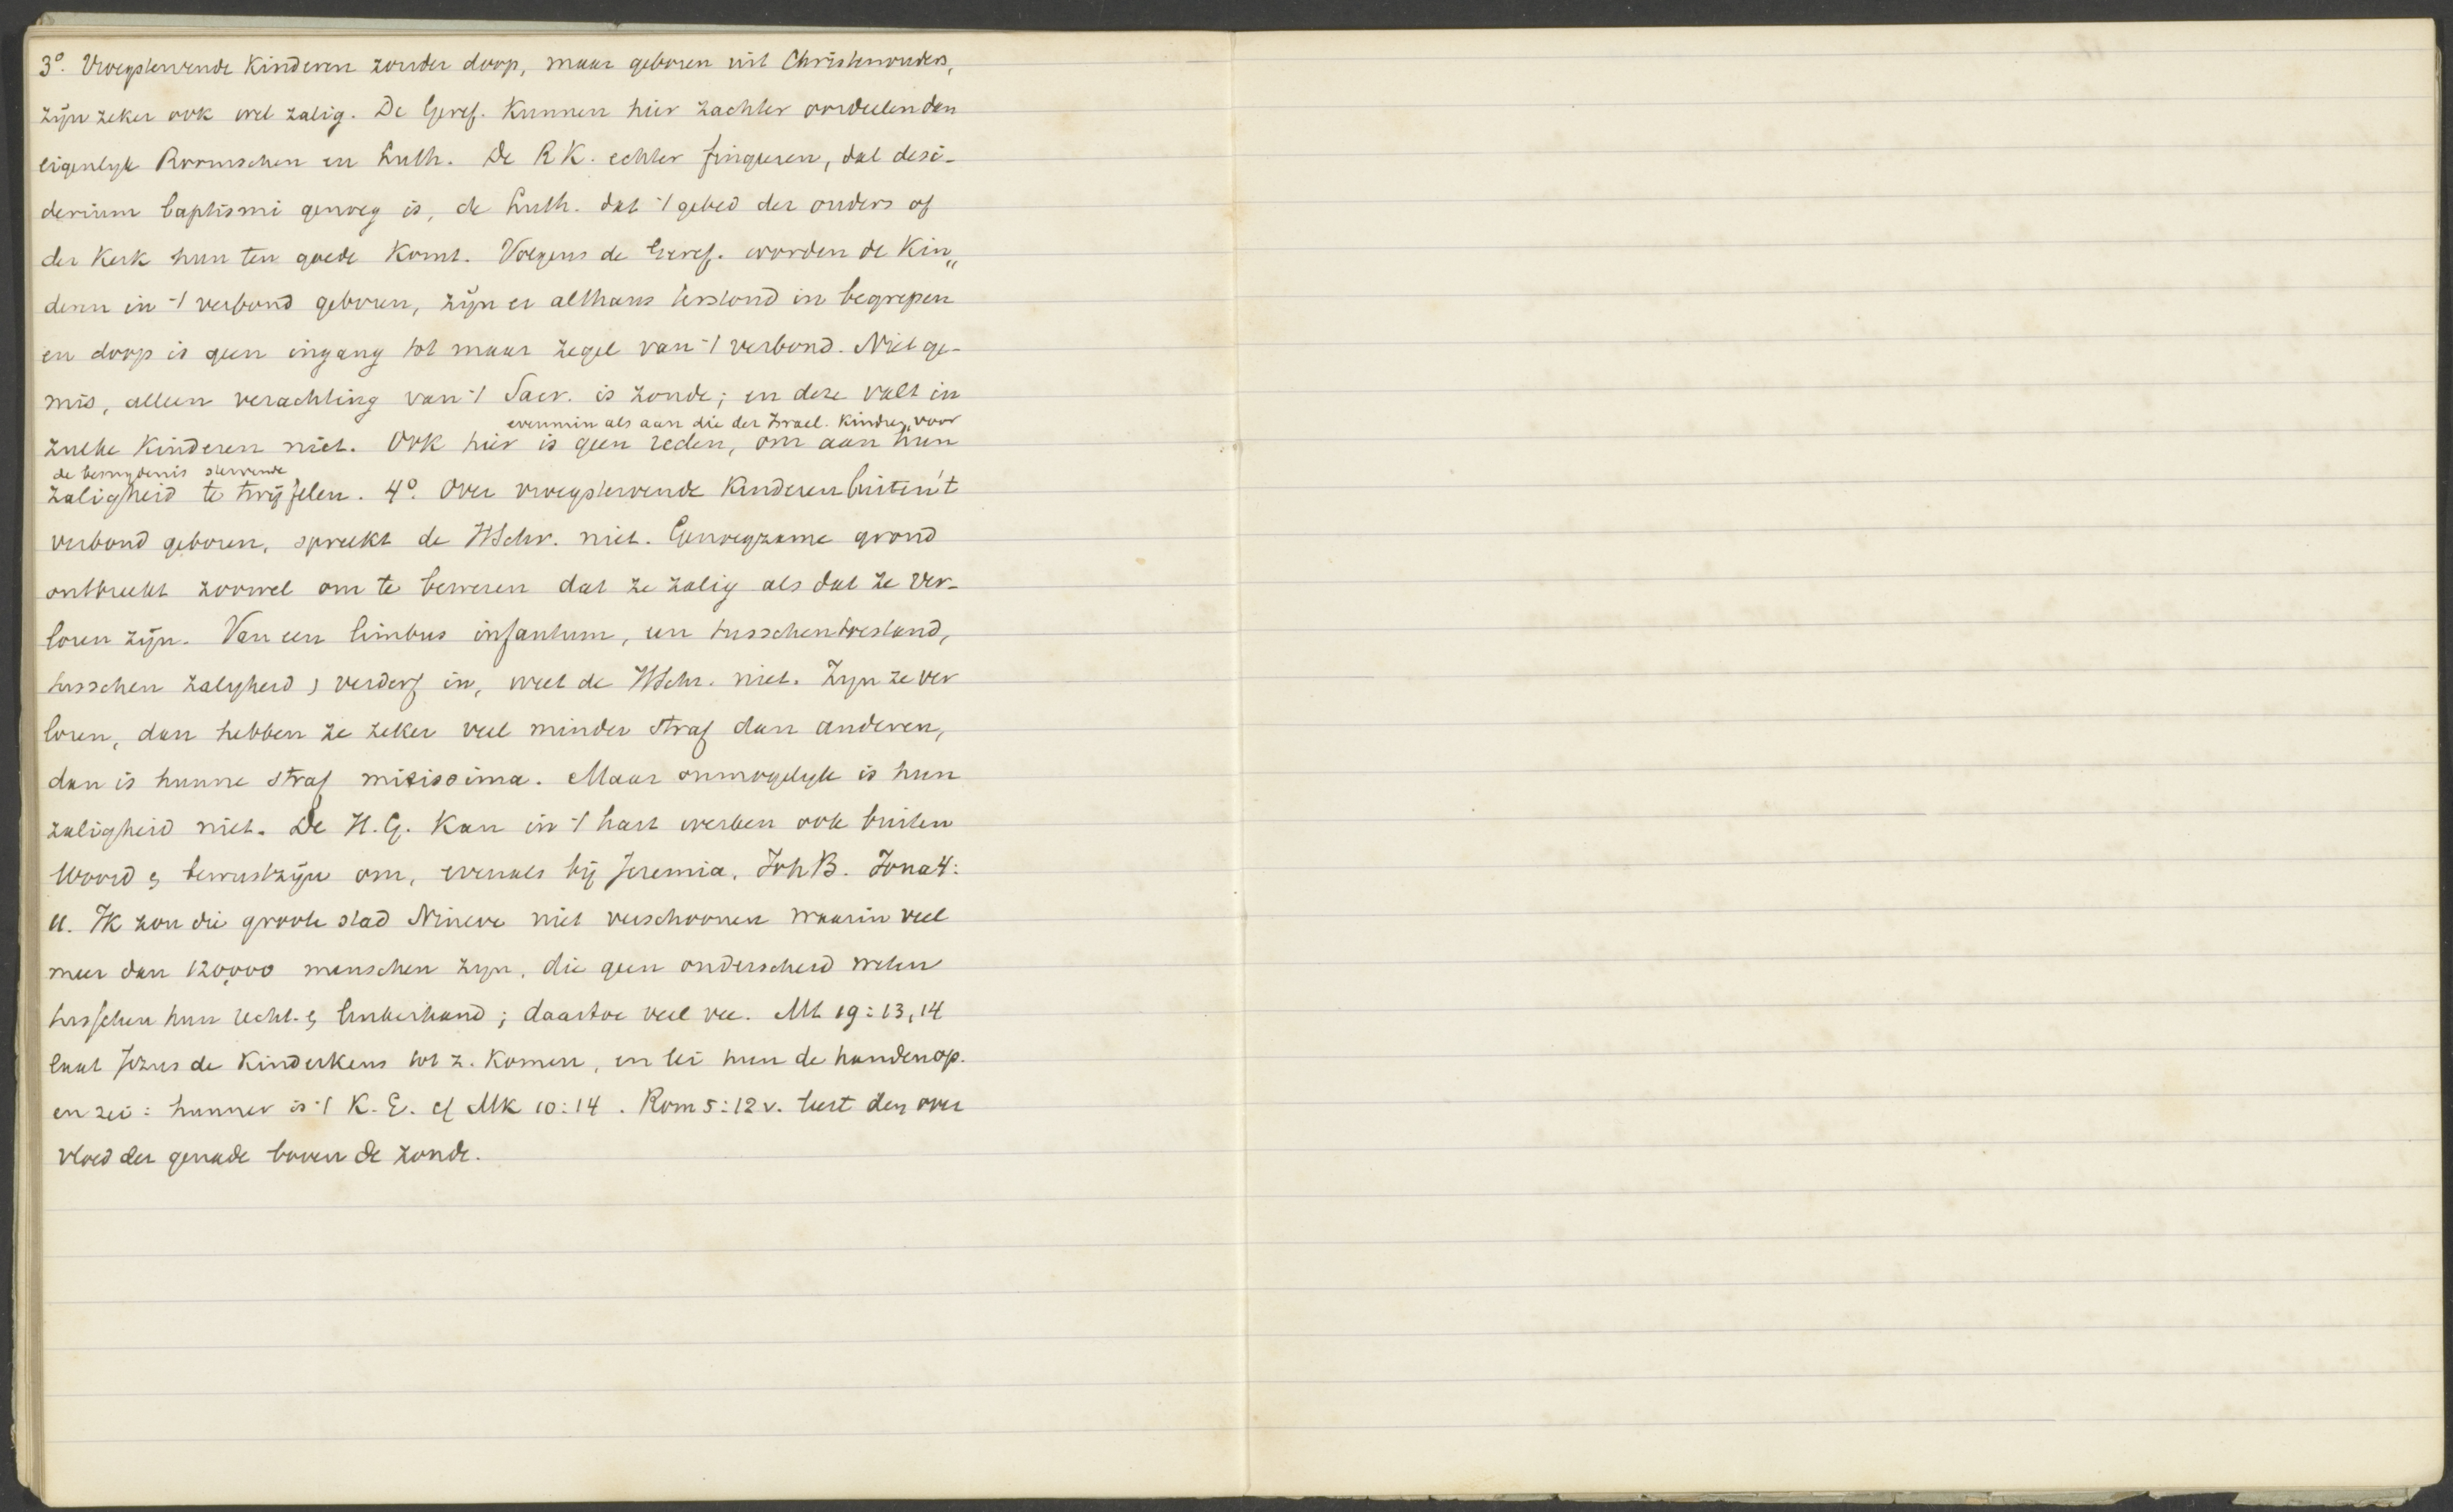 3°. Vroegstervende Kinderen zonder doop, maar geboren uit Christenouders,
zijn zeker ook wel zalig. De Geref. Kunnen hier zachter oordeelen dan
eigenlijk Roomschen en Luth. De R K. echter fingeeren, dat desi-
derium baptismi genoeg is, de Luth. dat 't gebed der ouders of
der Kerk hun ten goede Komt. Volgens de Geref. worden de Kin„
deren in 't verbond geboren, zijn er althans terstond in begrepen
en doop is geen ingang tot maar zegel van 't verbond. Niet ge-
mis, alleen verachting van 't Sacr. is zonde; en deze valt in
evenmin als aan die der Israel. Kindren, voor
zulke Kinderen niet. Ook hier is geen reden, om aan hun
de besnydenis stervende
zaligheid te twijfelen. 4°. Over vroegstervende Kinderen buiten 't
verbond geboren, spreekt de HSchr. niet. Genoegzame grond
ontbreekt zoowel om te beweren dat ze zalig als dat ze ver-
loren zijn. Van een limbus infantum, een tusschentoestand,
tusschen zaligheid & verderf in, weet de HSchr. niet. Zijn ze ver
loren, dan hebben ze zeker veel minder straf dan anderen,
dan is hunne straf mitissima. Maar onmogelyk is hun
zaligheid niet. De H.G. Kan in 't hart werken ook buiten
Woord & bewustzijn om, evenals bij Jeremia, Joh B. Jona 4:
11. Ik zou die groote stad Nineve niet verschoonen waarin veel
meer dan 120,000 menschen zyn, die geen onderscheid weten
tusschen hun recht. & linkerhand; daartoe veel vee. Mt 19:13,14
laat Jezus de Kinderkens tot z. Komen, en lei hun de handen op.
en zei: hunner is 't K. G. cf Mk 10:14. Rom 5:12 v. leert den over
vloed der genade boven de zonde.